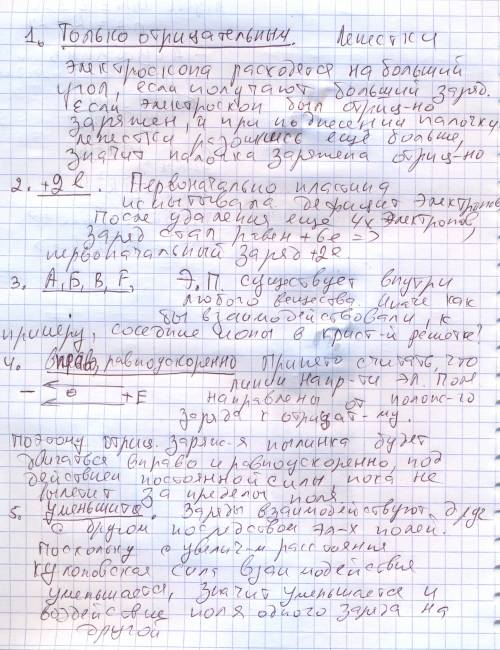 1. Только отрицательным. Лепестки
электроскопа расходятся на больший
угол, если получают больший заряд.
Если электроскоп был отриц-но
заряжен, и при поднесении палочки
лепестки разошлись ещё больше,
значит палочка заряжена отриц-но
2. +2е. Первоначально пластина
испытывала дефицит электронов
После удаления еще 4х электронов,
заряд стал равен +6е =>
первоначальный заряд +2е.
3. А, Б, В, Г, Э.П. существует внутри
любого вещества. Иначе как
бы взаимодействовали, к
примеру, соседние ионы в крист-й решотке?
4. вправо, равноускоренно Принято считать, что
линии напр-ти эл. поля
− е +E направлены от полож-го
заряда к отрицат-му.
Поэтому отриц. заряж-я пылинка будет
двигаться вправо и равноускоренно, под
действием постоянной силы, пока не
вылетит за пределы поля.
5. уменьшится. Заряды взаимодействуют друг
с другом посредством эл-х полей.
Поскольку с увелич-м расстояния
кулоновская сила взаимодействия
уменьшается, значит уменьшается и
воздействие поля одного заряда на
другой